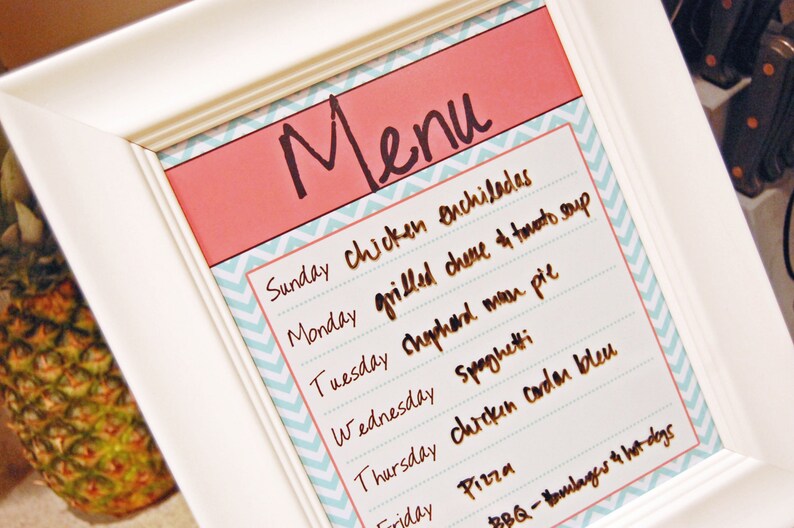 Menu
Sunday chicken enchiladas
Monday grilled cheese & tomato soup
Tuesday shepherd moon pie
Wednesday spaghetti
Thursday chicken cordon bleu
Friday Pizza
BBQ - Hamburger & hot-dogs